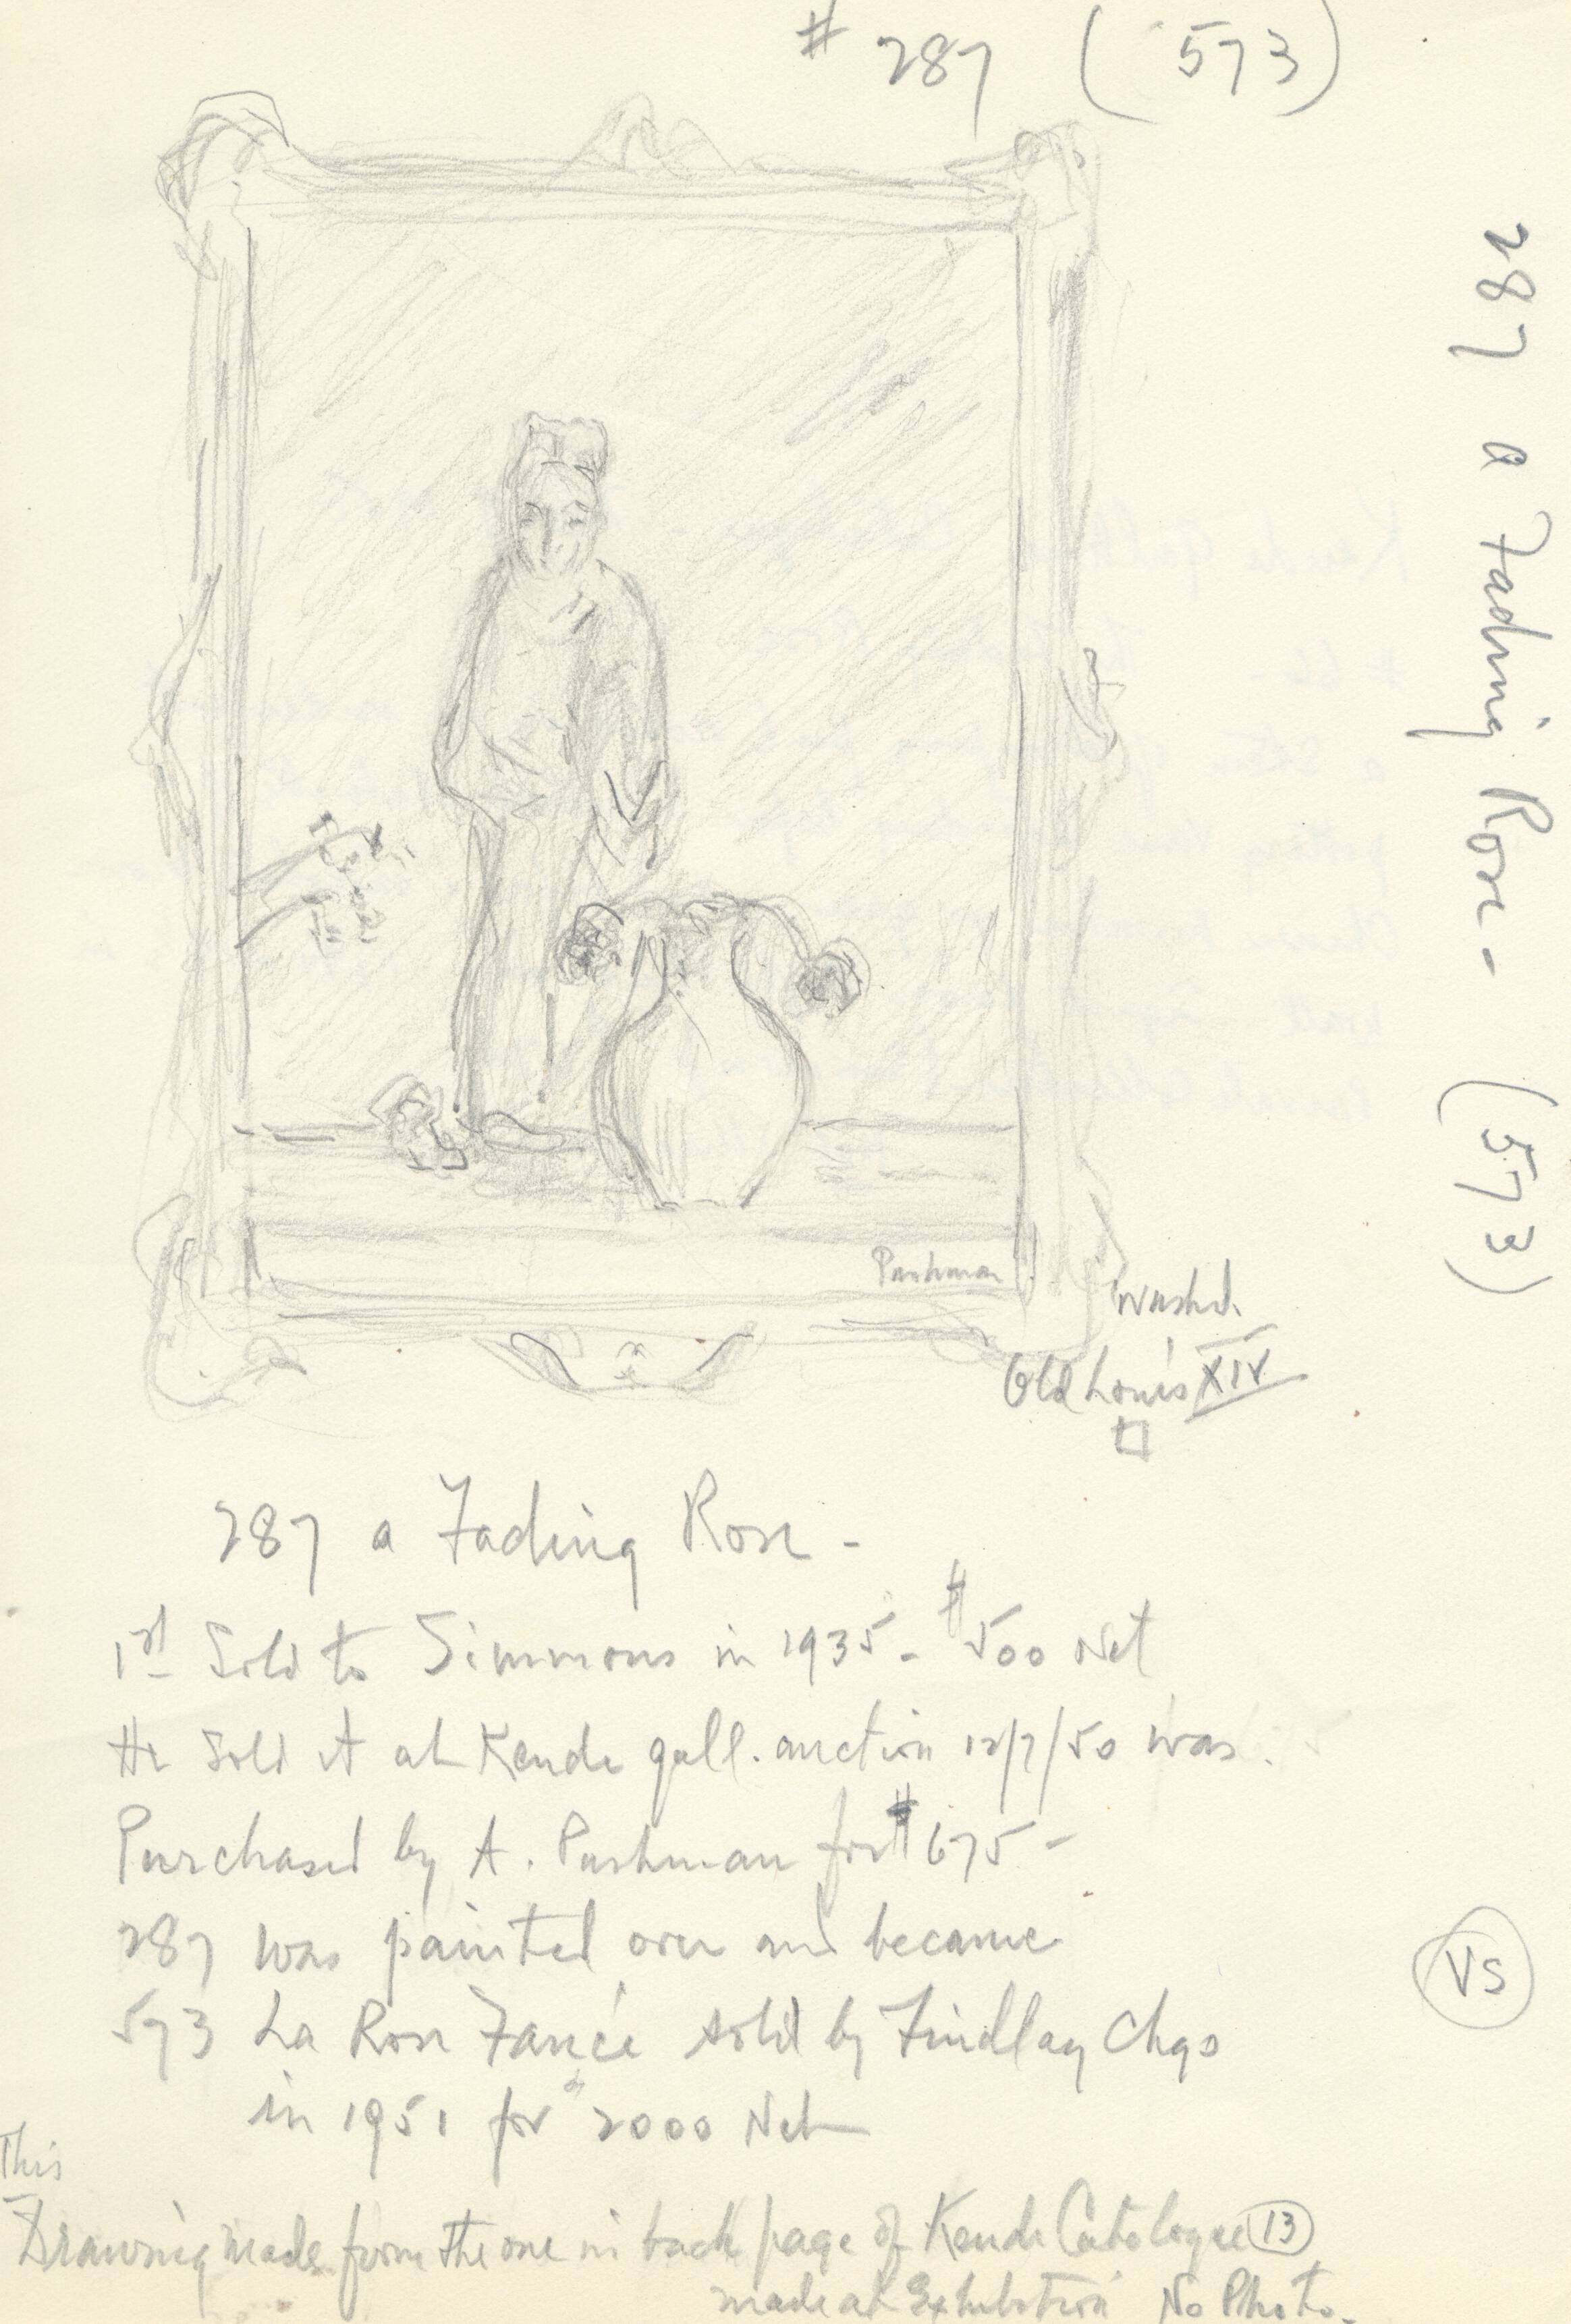 # 287 (573)
287 a Fading Rose - (573)
Pushman
Washd.
Old Louis XIV
287 a Fading Rose -
1st Sold to Simmons in 1935 - $500 Net
He sold it at Kende gall. auction 12/7/50 was
Purchased by A. Pushman for $675 -
287 was painted over and became
573 La Rose Fanée sold by Findlay Chgo
in 1951 for $2000 Net
VS
This
Drawing made from the one in back page of Kende Catologue 13
made at Exhibition No Photo.